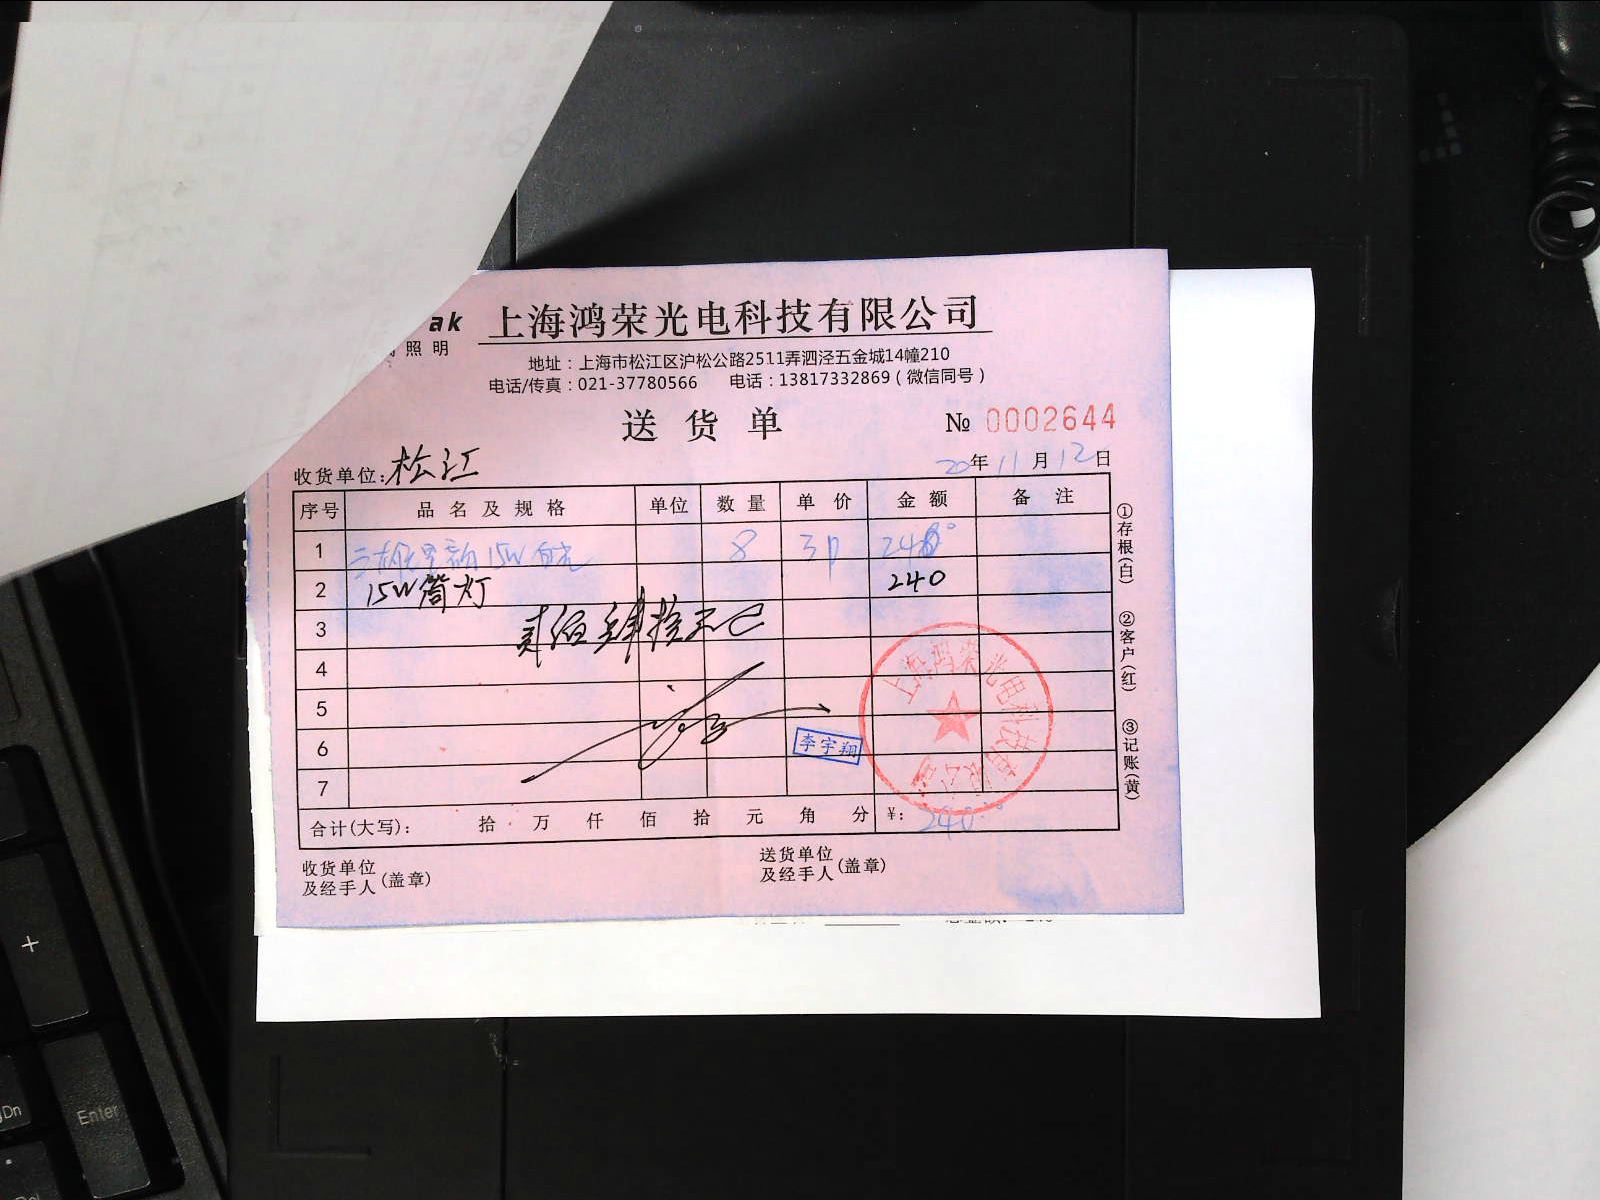 ak
照明
上海鸿荣光电科技有限公司
地址：上海市松江区沪松公路2511弄泗泾五金城14幢210
电话/传真：021-37780566 电话：13817332869（微信同号）
送货单 № 0002644
收货单位：松江 20年11月12日
序号 品名及规格 单位 数量 单价 金额 备注
1 15W 8 240
2 15W筒灯 240
3 贰佰肆拾元
4
5
6 李宇翔
7
上海鸿荣光电科技有限公司
合计(大写)： 拾 万 仟 佰 拾 元 角 分 ¥: 240
收货单位及经手人(盖章) 送货单位及经手人(盖章)
①存根(白) ②客户(红) ③记账(黄)
+
Enter